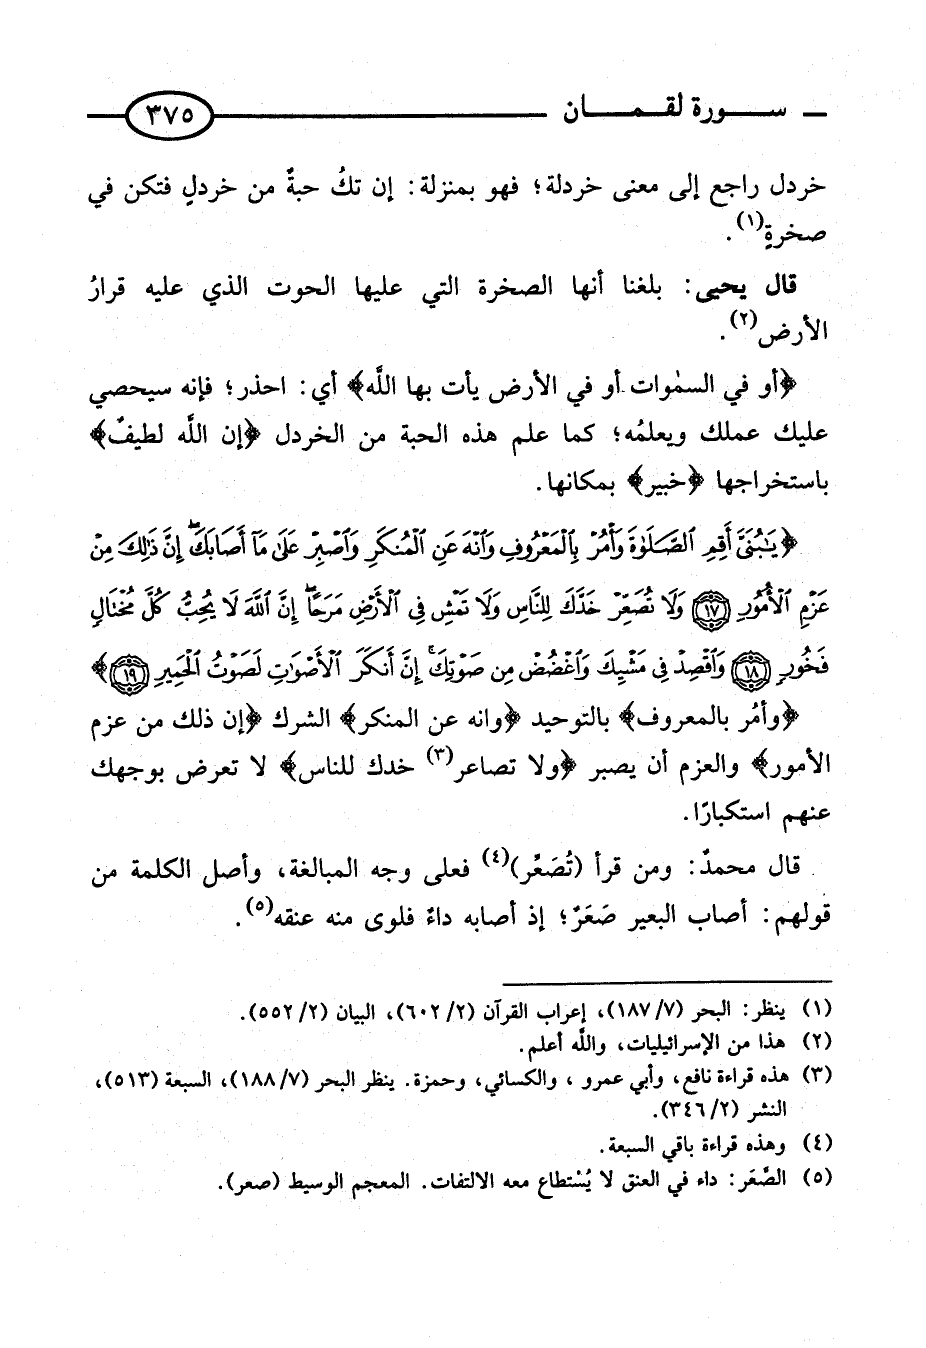 سورة لقمان ٣٧٥
خردل راجع إلى معنى خردلة؛ فهو بمنزلة: إن تكُ حبةٌ من خردلٍ فتكن في
صخرةٍ(١).
قال يحيى: بلغنا أنها الصخرة التي عليها الحوت الذي عليه قرارُ
الأرض(٢).
﴿أو في السمٰوات أو في الأرض يأت بها اللَّه﴾ أي: احذر؛ فإنه سيحصي
عليك عملك ويعلمُه؛ كما علم هذه الحبة من الخردل ﴿إن اللَّه لطيفٌ﴾
باستخراجها ﴿خبير﴾ بمكانها.
﴿يَٰبُنَيَّ أَقِمِ ٱلصَّلَوٰةَ وَأۡمُرۡ بِٱلۡمَعۡرُوفِ وَٱنۡهَ عَنِ ٱلۡمُنكَرِ وَٱصۡبِرۡ عَلَىٰ مَآ أَصَابَكَۖ إِنَّ ذَٰلِكَ مِنۡ
عَزۡمِ ٱلۡأُمُورِ ١٧ وَلَا تُصَعِّرۡ خَدَّكَ لِلنَّاسِ وَلَا تَمۡشِ فِي ٱلۡأَرۡضِ مَرَحًاۖ إِنَّ ٱللَّهَ لَا يُحِبُّ كُلَّ مُخۡتَالٖ
فَخُورٖ ١٨ وَٱقۡصِدۡ فِي مَشۡيِكَ وَٱغۡضُضۡ مِن صَوۡتِكَۚ إِنَّ أَنكَرَ ٱلۡأَصۡوَٰتِ لَصَوۡتُ ٱلۡحَمِيرِ ١٩﴾
﴿وأمُر بالمعروف﴾ بالتوحيد ﴿وانه عن المنكر﴾ الشرك ﴿إن ذلك من عزم
الأمور﴾ والعزم أن يصبر ﴿ولا تصاعر(٣) خدك للناس﴾ لا تعرض بوجهك
عنهم استكبارًا.
قال محمدٌ: ومن قرأ (تُصَعِّر)(٤) فعلى وجه المبالغة، وأصل الكلمة من
قولهم: أصاب البعير صَعَرٌ؛ إذ أصابه داءٌ فلوى منه عنقه(٥).
(١) ينظر: البحر (٧/ ١٨٧)، إعراب القرآن (٢/ ٦٠٢)، البيان (٢/ ٥٥٢).
(٢) هذا من الإسرائيليات، واللَّه أعلم.
(٣) هذه قراءة نافع، وأبي عمرو ، والكسائي، وحمزة. ينظر البحر (٧/ ١٨٨)، السبعة (٥١٣)،
النشر (٢/ ٣٤٦).
(٤) وهذه قراءة باقي السبعة.
(٥) الصَّعَر: داء في العنق لا يُسْتطاع معه الالتفات. المعجم الوسيط (صعر).